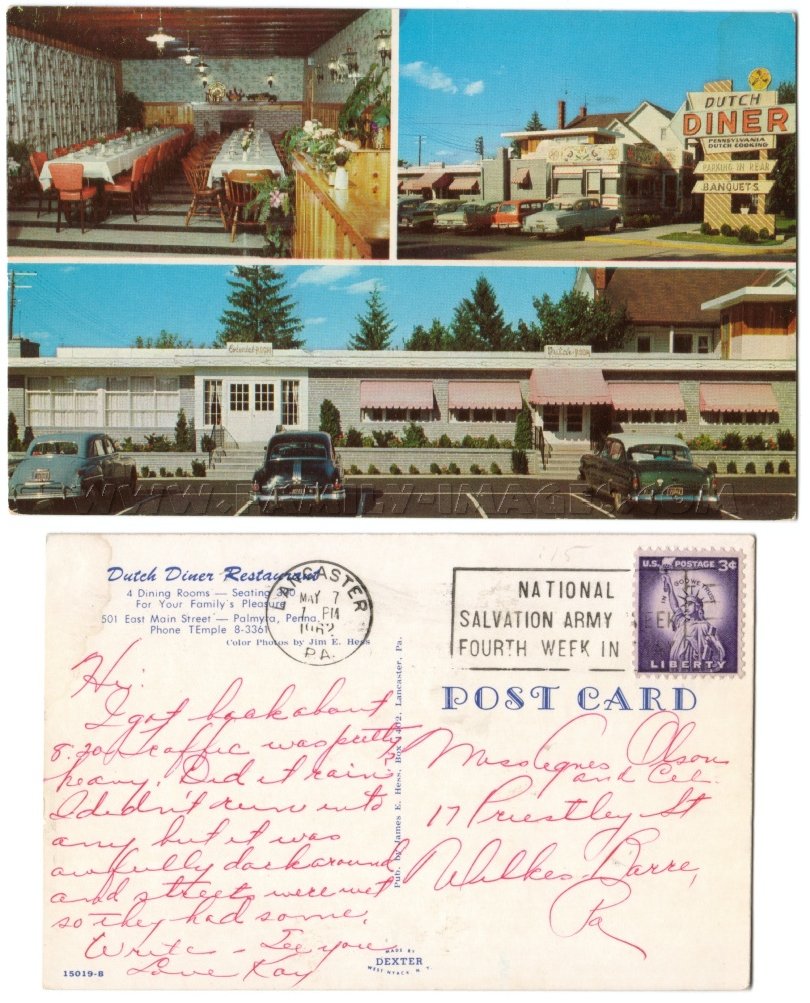 DUTCH
DINER
PENNSYLVANIA
DUTCH COOKING
PARKING IN REAR
BANQUETS
Colonial-ROOM
ROOM
WWW.FAMILY-IMAGES.COM
Dutch Diner Restaurant
4 Dining Rooms — Seating 300
For Your Family's Pleasure
501 East Main Street — Palmyra, Penna.
Phone TEmple 8-3361
Color Photos by Jim E. Hess
LANCASTER
MAY 7
7 PM
1962
PA.
NATIONAL
SALVATION ARMY WEEK
FOURTH WEEK IN
U.S. POSTAGE 3¢
IN GOD WE TRUST
LIBERTY
POST CARD
Hi,
I got back about
8.20 traffic was pretty
heavy. Did it rain?
I didn't run into
any but it was
awfully dark around
and streets were wet
so they had some.
Write — See you
Love Kay
Pub. by James E. Hess, Box 1402, Lancaster, Pa.
Miss Agnes Olson
and Cec.
17 Priestley St
Wilkes-Barre,
Pa
15019-B
MADE BY
DEXTER
WEST NYACK, N. Y.